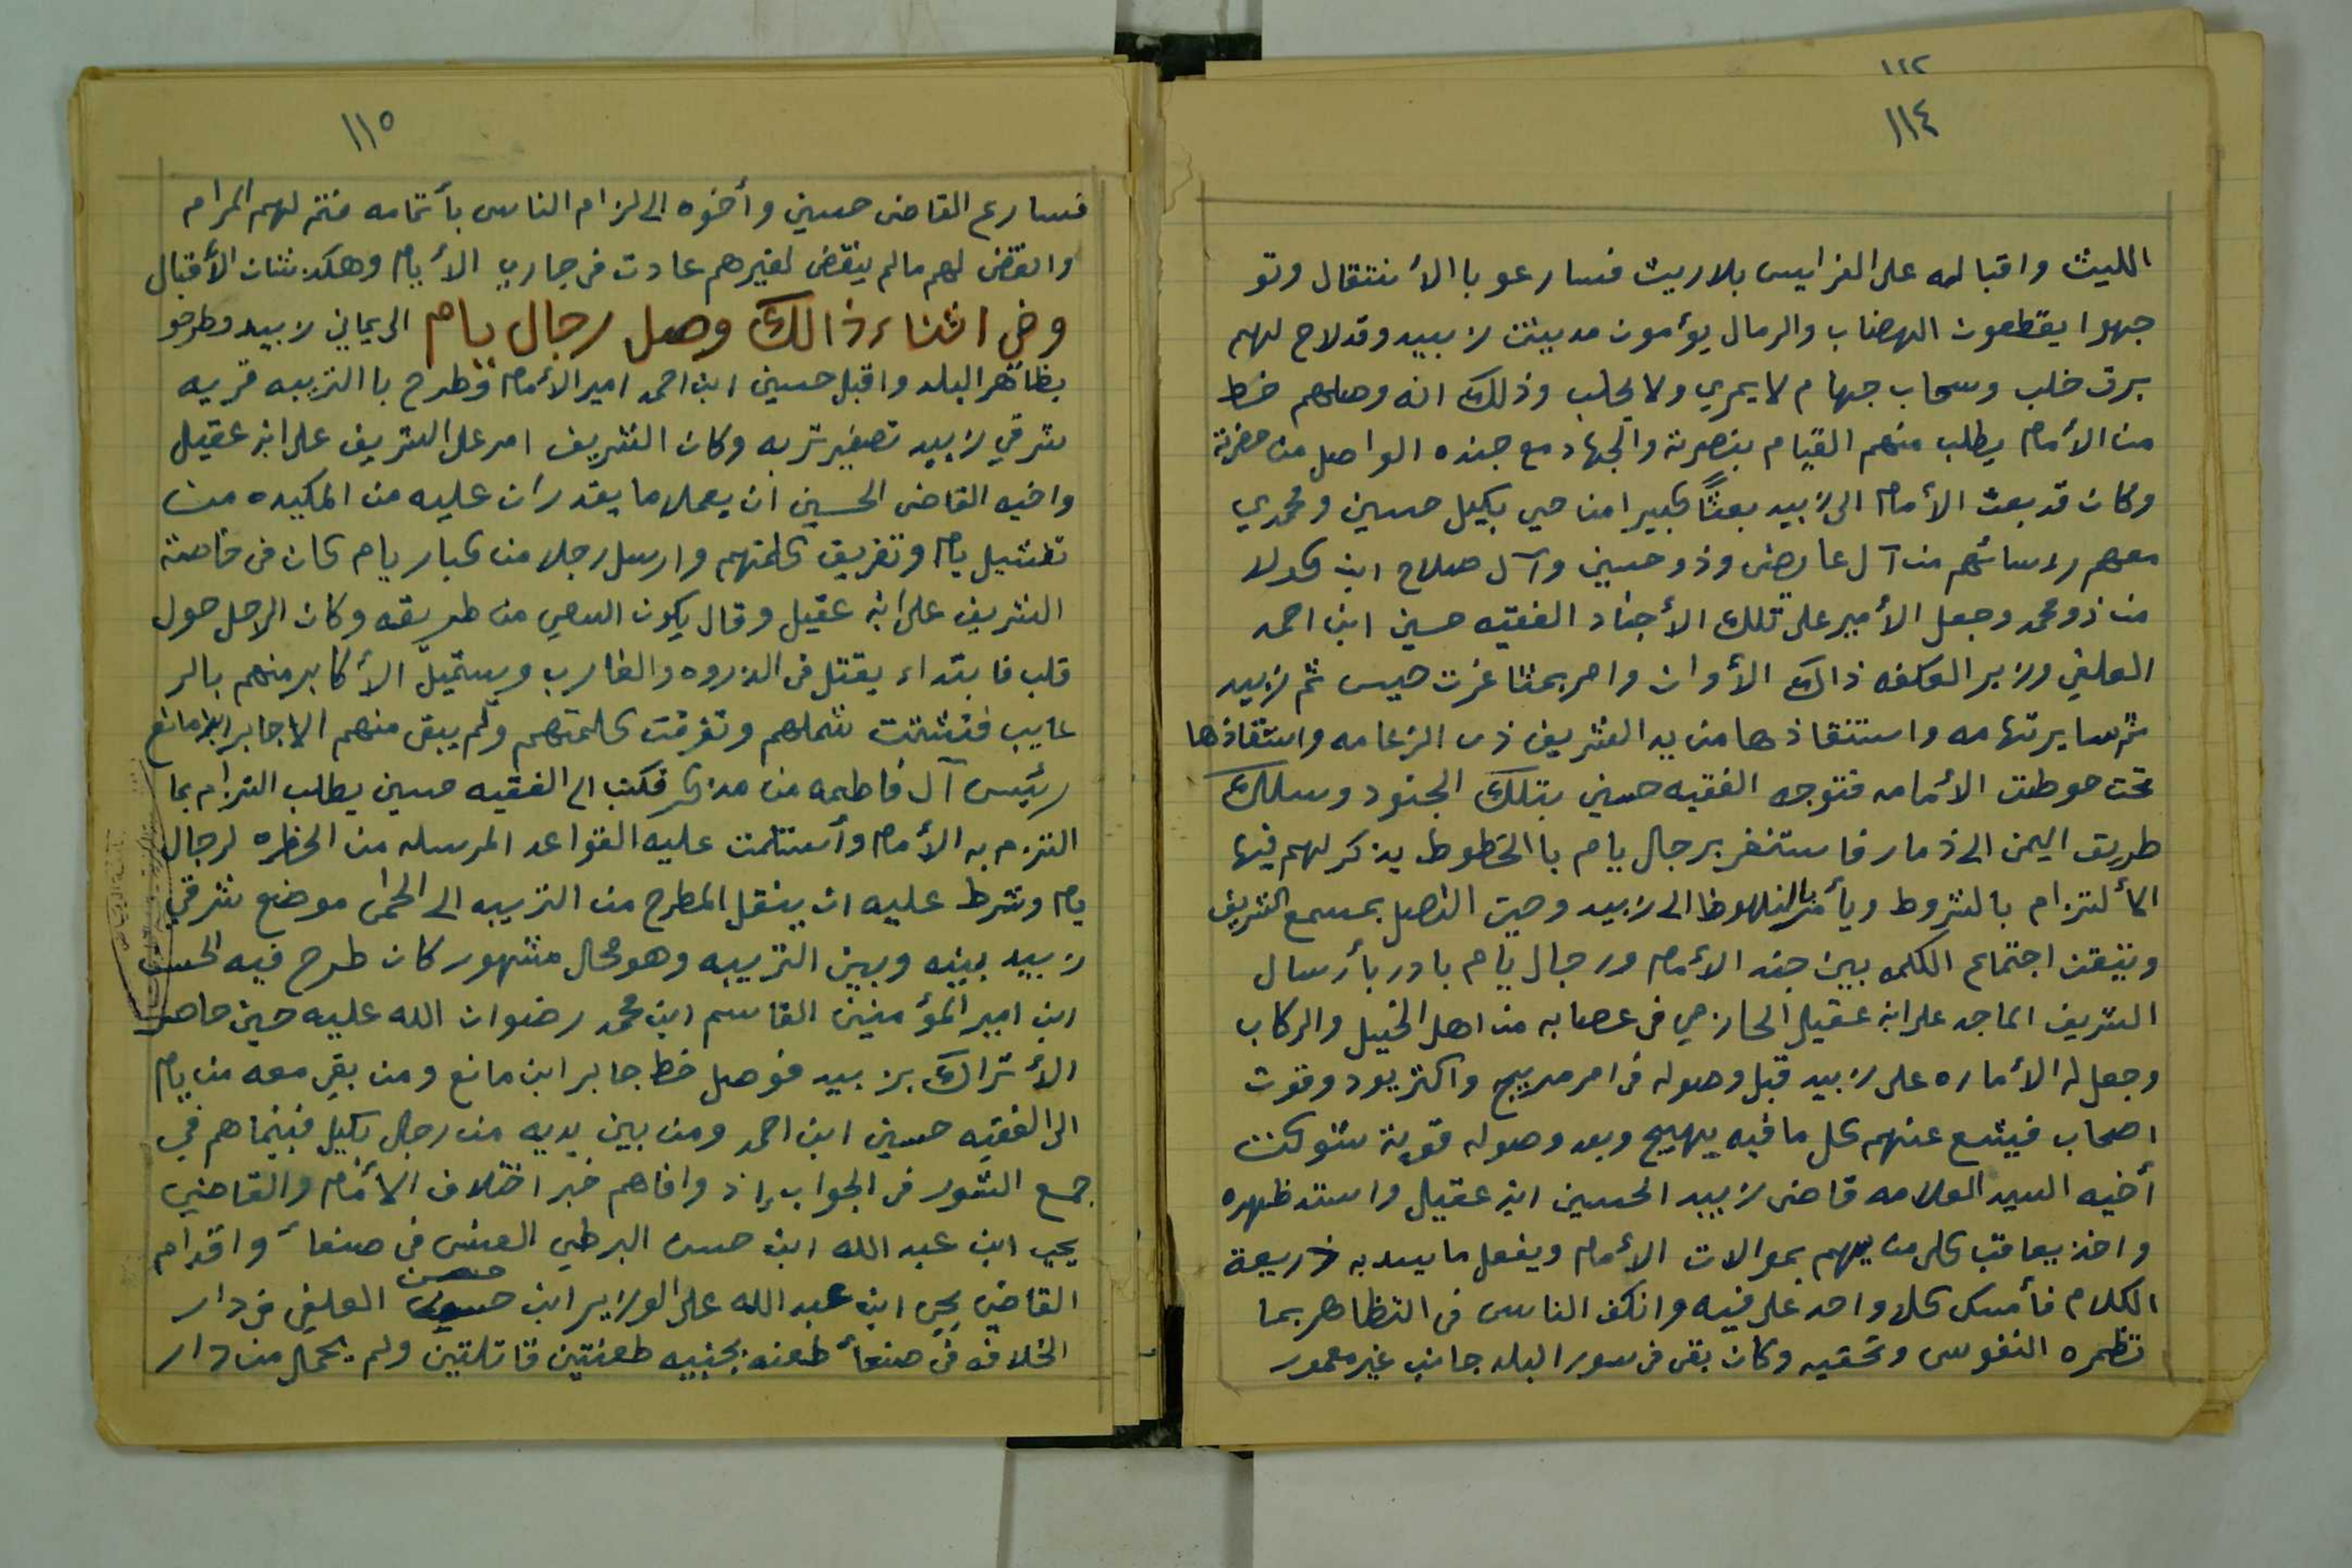 ١١٢
١١٤
الليث واقباله على الفرايس بلاريث فسارعو با الأنتقال وتو
جهوا يقطعون الهضاب والرمال يؤمون مدينت زبيد وقدلاح لهم
برق خلب وسحاب جهام لا يمري ولا يحلب وذلك انه وصلهم خط
من الأمام يطلب منهم القيام بنصرته والجهاد مع جنده الواصل من حضرته
وكان قد بعث الأمام الى زبيد بعثاً كبيرا من حي بكيل حسين ومحمدي
معهم رءسائهم من آل عا يض وذو حسين وآل صلاح ابن كولا
من ذومحمد وجعل الأمير على تلك الأجناد الفقيه حسين ابن احمد
العلفي وزير الوكفه ذالك الأوان وامر بمثاغرت حيس ثم زبيد
ثم ساير تهامه واستنقاذها من يد الشريف ذى الزعامه واستقاذها
تحت حوطت الأمامه فتوجه الفقيه حسين بتلك الجنود وسلك
طريق اليمن الى ذمار فاستنفر برجال يام با الخطوط يذكر لهم فيها
الألتزام بالشروط ويأمر بالنهوظ الى زبيد وحين اتصل بمسمع الشريف
وتيقن اجتماع الكلمه بين جند الأمام ورجال يام بادر بأرسال
الشريف الماجد على ابن عقيل الحازمي فى عصابه من اهل الخيل والركاب
وجعل له الأماره على زبيد قبل وصوله فى امر مريج واكثر يود وقوت
اصحاب فيشع عنهم كل ما فيه يهيج وبعد وصوله قويت شوكت
أخيه السيد العلامه قاضى زبيد الحسين ابن عقيل واستد ظهره
واخذ يعاقب كل من يهم بموالات الأمام ويفعل ما يسد به ذريعة
الكلام فأمسك كلا واحد على فيه وانكف الناس فى التظاهر بما
تظمره النفوس وتخفيه وكان بقى فى سور البلد جانب غير معمور
١١٥
فسارع القاضى حسين وأخوه الى لزام الناس بأتمامه فتم لهم المرام
وانقض لهم مالم ينقض لغيرهم عادت فى جاري الأيام وهكذ شان الأقبال
وفي اثناء ذالك وصل رجال يام الى يماني زبيد وطرحو
بظاهر البلد واقبل حسين ابن احمد امير الأمام وطرح با التريبه قريه
شرقي زبيد تصغير تربه وكان الشريف امر على الشريف على ابن عقيل
واخيه القاضى الحسين ان يعملا ما يقدران عليه من المكيده من
تفشيل يام وتفريق كلمتهم وارسل رجلا من كبار يام كان فى خاصة
الشريف على ابن عقيل وقال يكون السعي من طريقه وكان الرجل حول
قلب فابتداء يفتل فى الذروه والغارب ويستميل الأكابر منهم بالر
عايب فتشتت شملهم وتفرقت كلمتهم ولم يبقى منهم الا جابر ابن مانع
رئيس آل فاطمه من مذكر فكتب الى الفقيه حسين يطلب التزام بما
التزم به الأمام وأستلمت عليه القواعد المرسله من الحظره لرجال
يام وشرط عليه ان ينقل المطرح من التريبه الى الحمى موضع شرقي
زبيد بينه وبين التريبه وهو محال مشهور كان طرح فيه الحسن
ابن امير المؤمنين القاسم ابن محمد رضوان الله عليه حين حاصر
الأتراك بز بيد فوصل خط جابر ابن مانع ومن بقي معه من يام
الى الفقيه حسين ابن احمد ومن بين يديه من رجال بكيل فبينما هم في
جمع الشور فى الجواب إذ وافاهم خبر اختلاف الأمام والقاضي
يحي ابن عبد الله ابن حسن البرطي العنسى فى صنعأ واقدام
القاضى يحي ابن عبد الله على الوزير ابن حسن العلفي فى دار
الخلافه فى صنعأ طعنه بجنبيه طعنتين قاتلتين ولم يحمل من دار